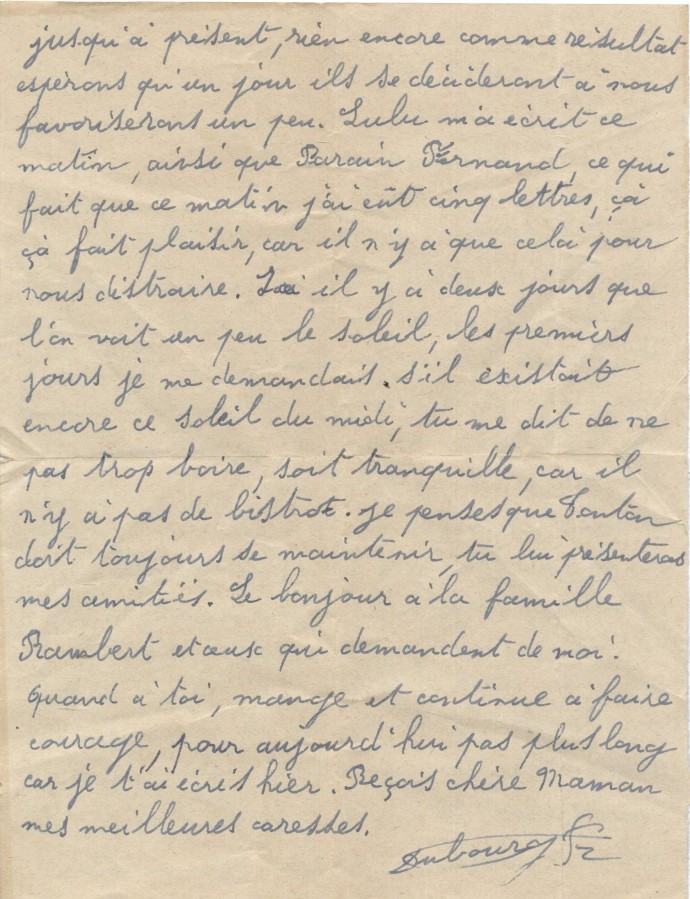 jusqu'à présent, rien encore comme résultat
espérons qu'un jour ils se décideront à nous
favoriserons un peu. Lulu m'a écrit ce
matin, ainsi que Parain Fernand, ce qui
fait que ce matin j'ai eût cinq lettres, çà
çà fait plaisir, car il n'y a que cela pour
nous distraire. il y a deux jours que
l'on voit un peu le soleil, les premiers
jours je me demandais s'il existait
encore ce soleil du midi, tu me dit de ne
pas trop boire, soit tranquille, car il
n'y a pas de bistrot. je penses que Tonton
doit toujours se maintenir, tu lui présenteras
mes amitiés. Le bonjour à la famille
Rambert et ceux qui demandent de moi.
Quand à toi, mange et continue à faire
courage, pour aujourd'hui pas plus long
car je t'ai écris hier. Reçois chère Maman
mes meilleures caresses.
Dubourg